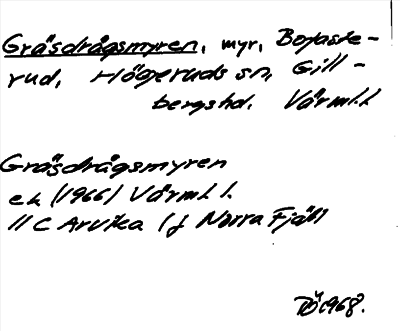 Gräsdrågsmyren, myr, Bojaste-
rud, Högeruds sn, Gill-
bergs hd. Värml. l
Gräsdrågsmyren
ek (1966) Värml. l.
11 C Arvika (f Norra Fjäll)
1968.